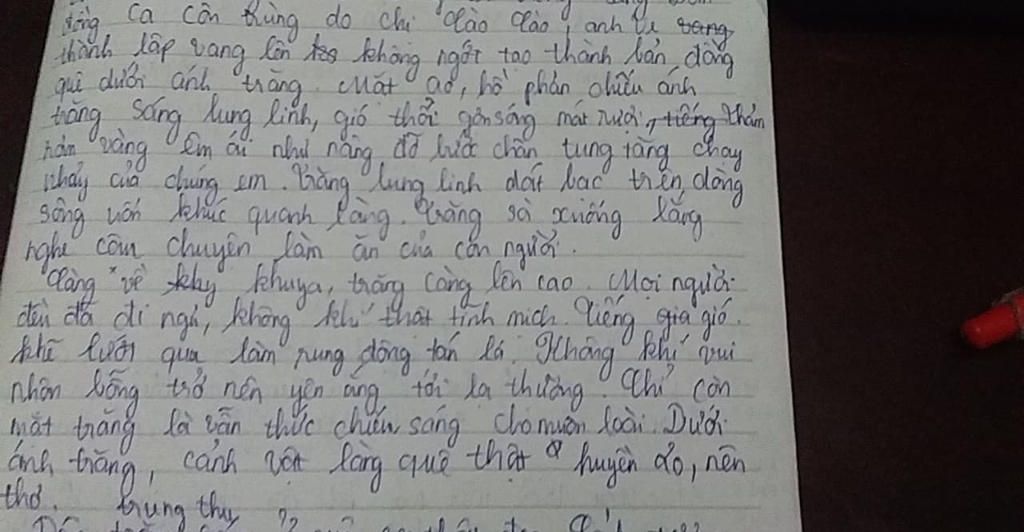 ca côn trùng do chị Cào Cào, anh
thành lập vang lên không ngớt tạo thành bản đồng
quê dưới ánh trăng. Mặt ao, hồ phản chiếu ánh
trăng sáng lung linh, gió thổi gợn sóng mát rượi, tiếng thảm
vàng êm ái như nâng đỡ bước chân tung tăng chạy
nhảy của chúng em. Trăng lung linh dát bạc trên dòng
sông uốn khúc quanh làng. Trăng sà xuống lắng
nghe câu chuyện làm ăn của con người.
Càng về khuya, trăng càng lên cao. Mọi người
đều đã đi ngủ, không khí thật tĩnh mịch. Tiếng gió
khẽ lướt qua làm rung động tán lá. Không khí vui
nhộn bỗng trở nên yên ắng tới lạ thường. Chỉ còn
mặt trăng là vẫn thức chiếu sáng cho muôn loài. Dưới
ánh trăng, cảnh vật làng quê thật huyền ảo, nên
thơ. trung thu